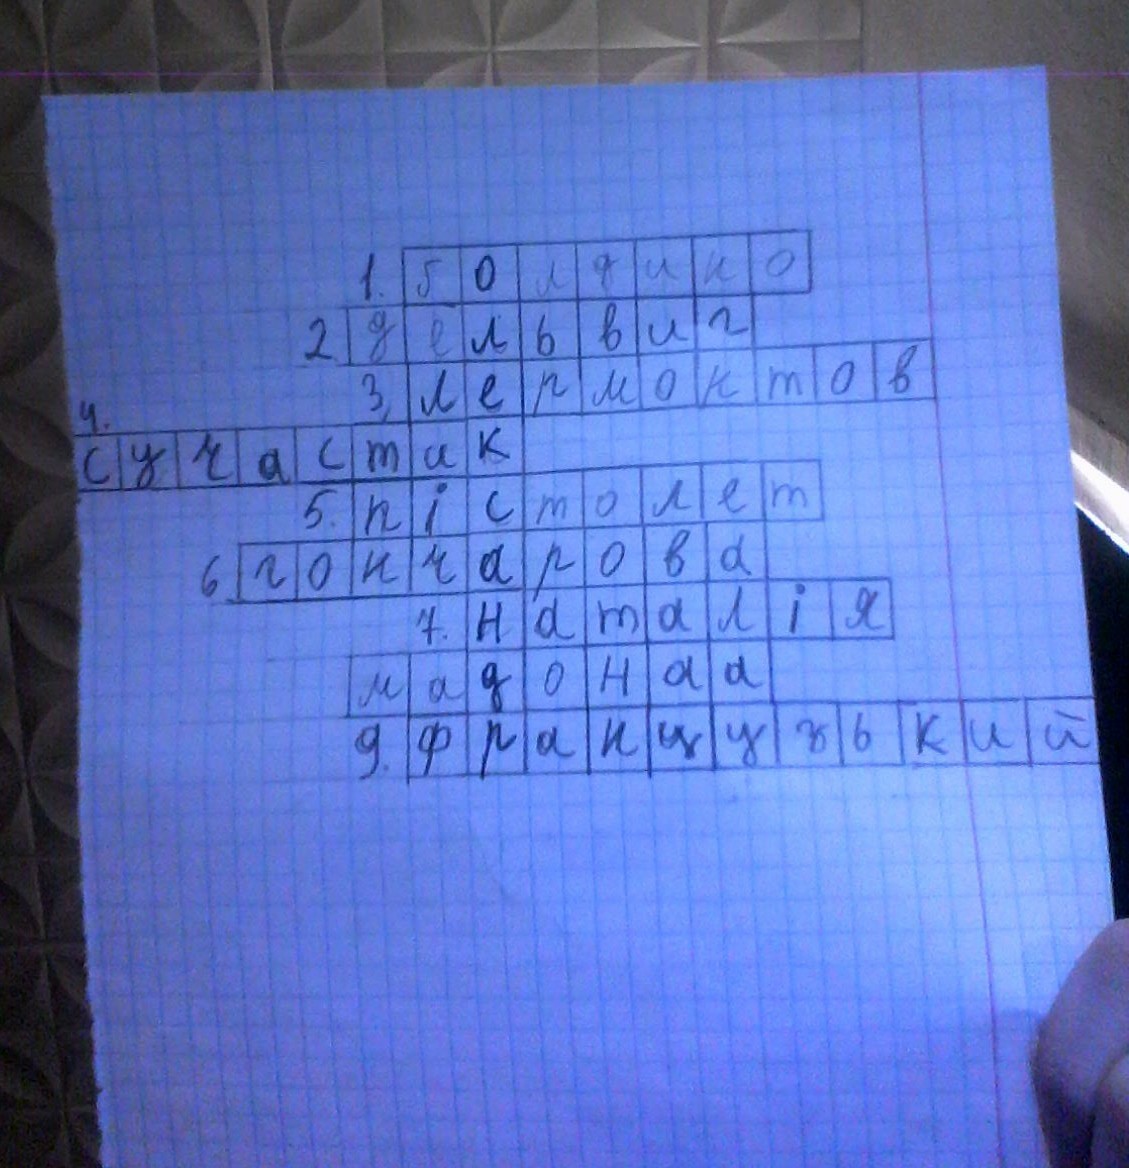 1. болдино
2 дельвиг
3, лермонтов
4.
сучастик
5. пістолет
6 гончарова
7. наталія
мадонаа
9. французький